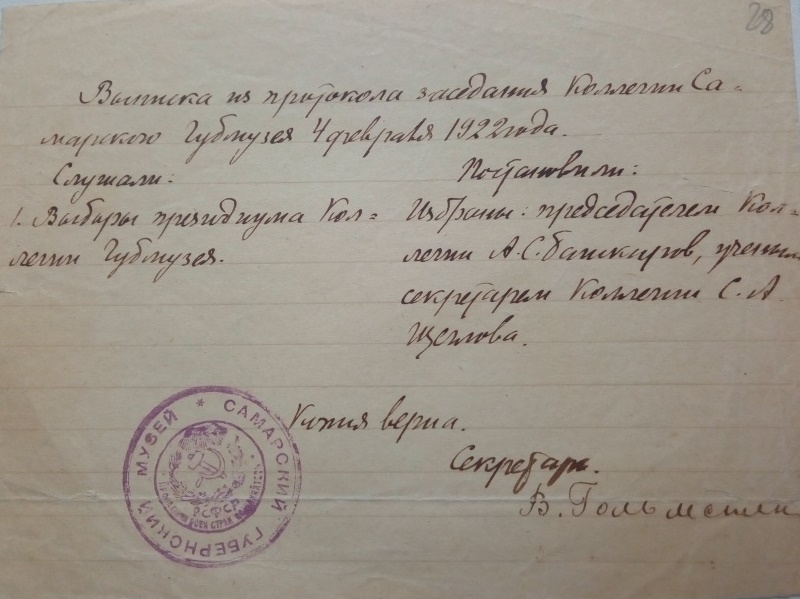 28
Выписка из протокола заседания Коллегии Са-
марского Губмузея 4 февраля 1922 года.
Слушали:
Постановили:
1. Выборы президиума Кол-
легии Губмузея.
Избраны: председателем Кол-
легии А.С. Башкиров, ученым
секретарем Коллегии С.А.
Щеглова.
Копия верна.
Секретарь.
В. Гольмстен
САМАРСКИЙ ГУБЕРНСКИЙ МУЗЕЙ *
РСФСР